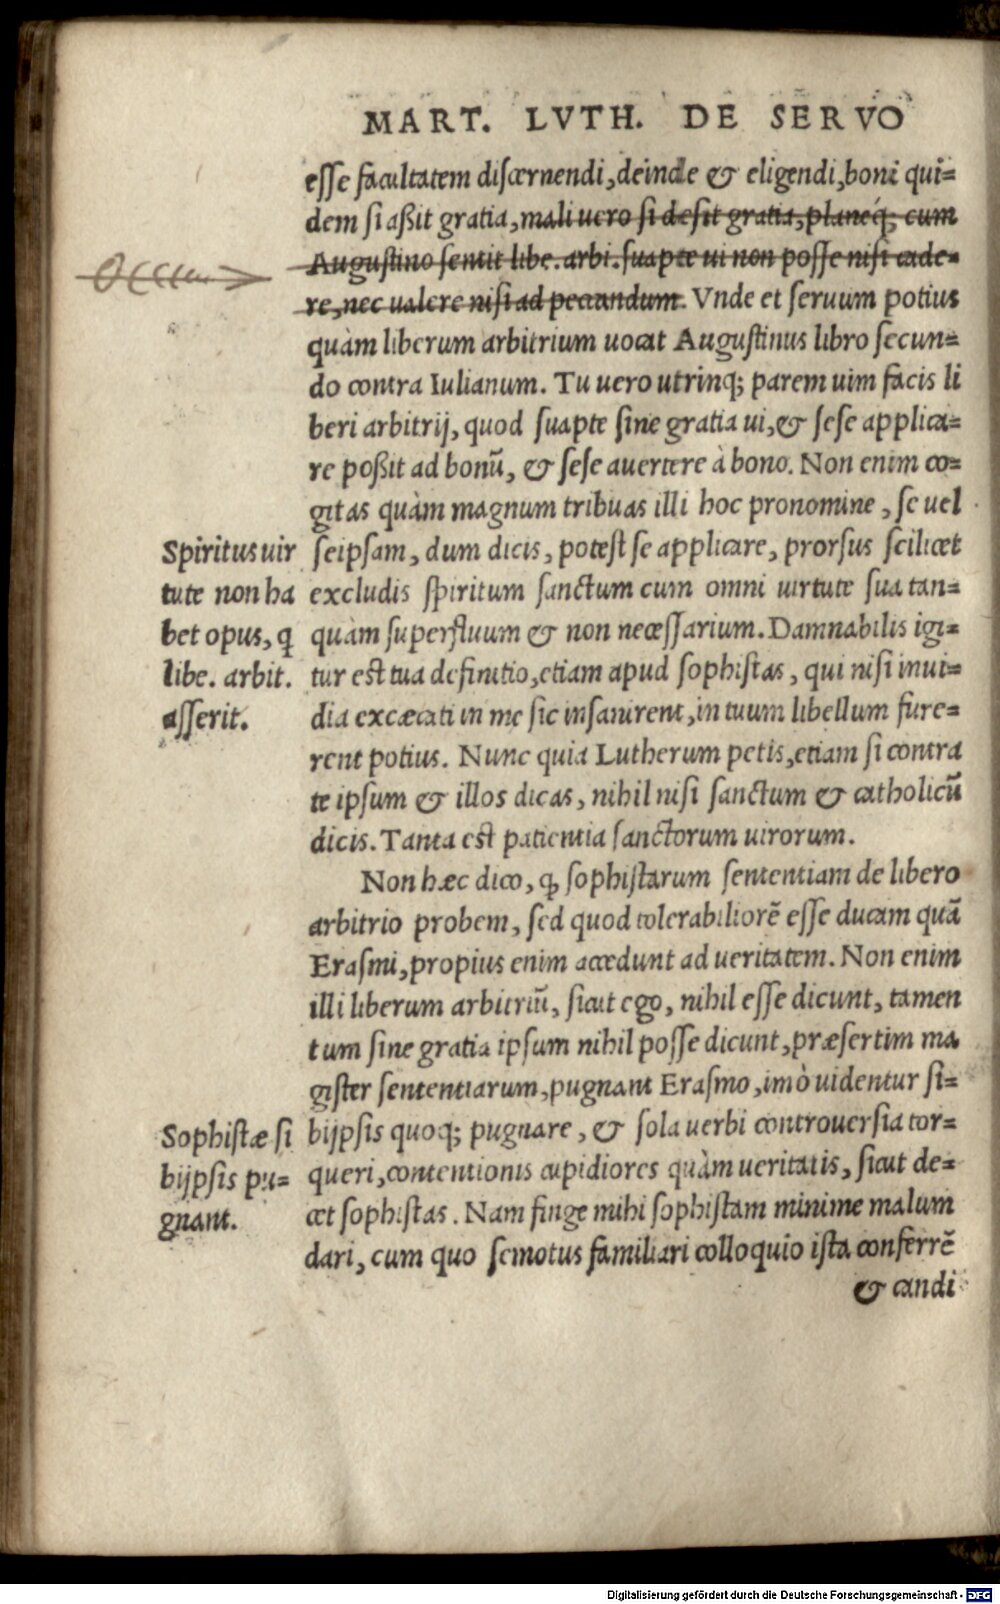 MART. LVTH. DE SERVO
esse facultatem discernendi, deinde & eligendi, boni qui=
dem si aßit gratia, mali uero si desit gratia, planeq́; cum
Augustino sentit libe. arbi. suapte ui non posse nisi cade=
re, nec ualere nisi ad peccandum. Vnde et seruum potius
quàm liberum arbitrium uocat Augustinus libro secun=
do contra Iulianum. Tu uero utrinq; parem uim facis li
beri arbitrij, quod suapte sine gratia ui, & sese applica=
re poßit ad bonũ, & sese auertere à bono. Non enim co=
gitas quàm magnum tribuas illi hoc pronomine, se uel
seipsam, dum dicis, potest se applicare, prorsus scilicet
excludis spiritum sanctum cum omni uirtute sua tan=
quàm superfluum & non necessarium. Damnabilis igi=
tur est tua definitio, etiam apud sophistas, qui nisi inui=
dia excæcati in me sic insanirent, in tuum libellum fure=
rent potius. Nunc quia Lutherum petis, etiam si contra
te ipsum & illos dicas, nihil nisi sanctum & catholicũ
dicis. Tanta est patientia sanctorum uirorum.
Spiritus uir
tute non ha
bet opus, ꝙ
libe. arbit.
asserit.
Non hæc dico, ꝙ sophistarum sententiam de libero
arbitrio probem, sed quod tolerabiliorẽ esse ducam quã
Erasmi, propius enim accedunt ad ueritatem. Non enim
illi liberum arbitriũ, sicut ego, nihil esse dicunt, tamen
tum sine gratia ipsum nihil posse dicunt, præsertim ma
gister sententiarum, pugnant Erasmo, imò uidentur si=
bijpsis quoq; pugnare, & sola uerbi controuersia tor=
queri, contentionis cupidiores quàm ueritatis, sicut de=
cet sophistas. Nam finge mihi sophistam minime malum
dari, cum quo semotus familiari colloquio ista conferrẽ
Sophistæ si
bijpsis pu=
gnant.
& candi
Digitalisierung gefördert durch die Deutsche Forschungsgemeinschaft - DFG